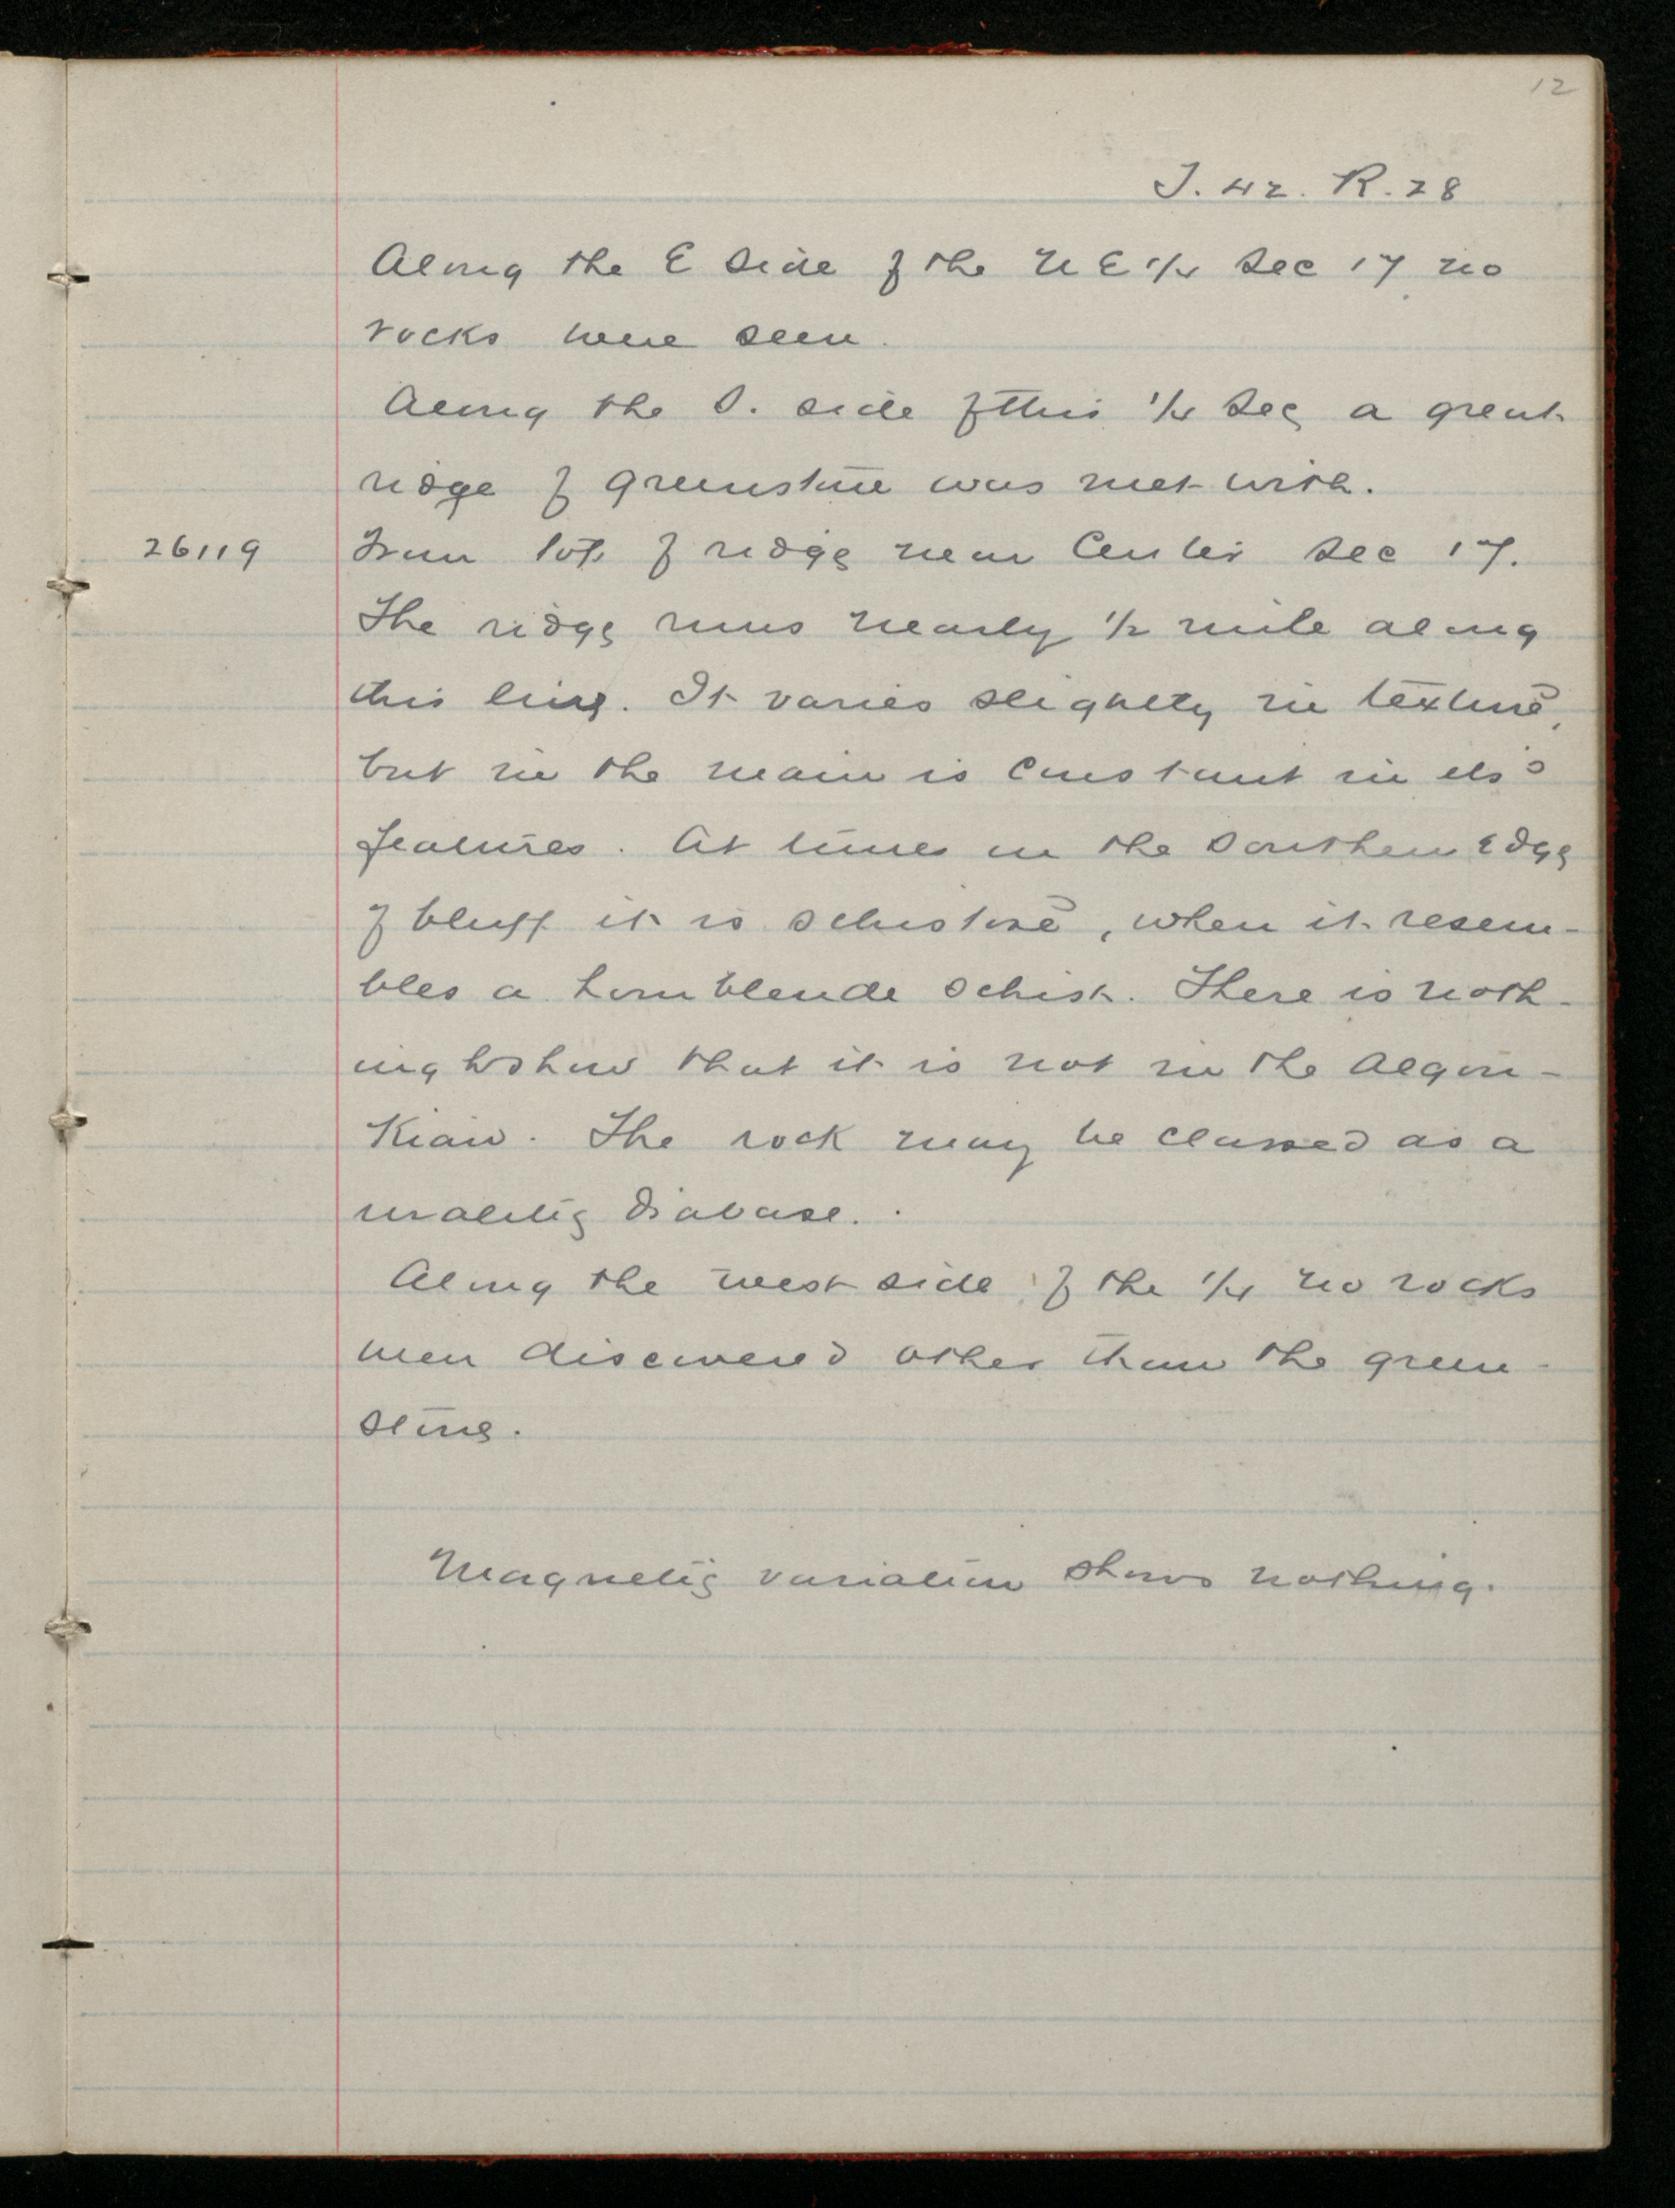 12
T. 42. R. 28
Along the E side of the N E 1/4 Sec 17 no
rocks were seen.
Along the S. side of this 1/4 Sec a great
ridge of greenstone was met with.
26119 From top of ridge near Center Sec 17.
The ridge runs nearly 1/2 mile along
this line. It varies slightly in texture,
but in the main is constant in its
features. At times on the southern edge
of bluff it is schistose, when it resem-
bles a hornblende schist. There is noth-
ing to show that it is not in the Algon-
kian. The rock may be classed as a
uralitic diabase.
Along the west side of the 1/4 no rocks
were discovered other than the green-
stone.
Magnetic variation shows nothing.